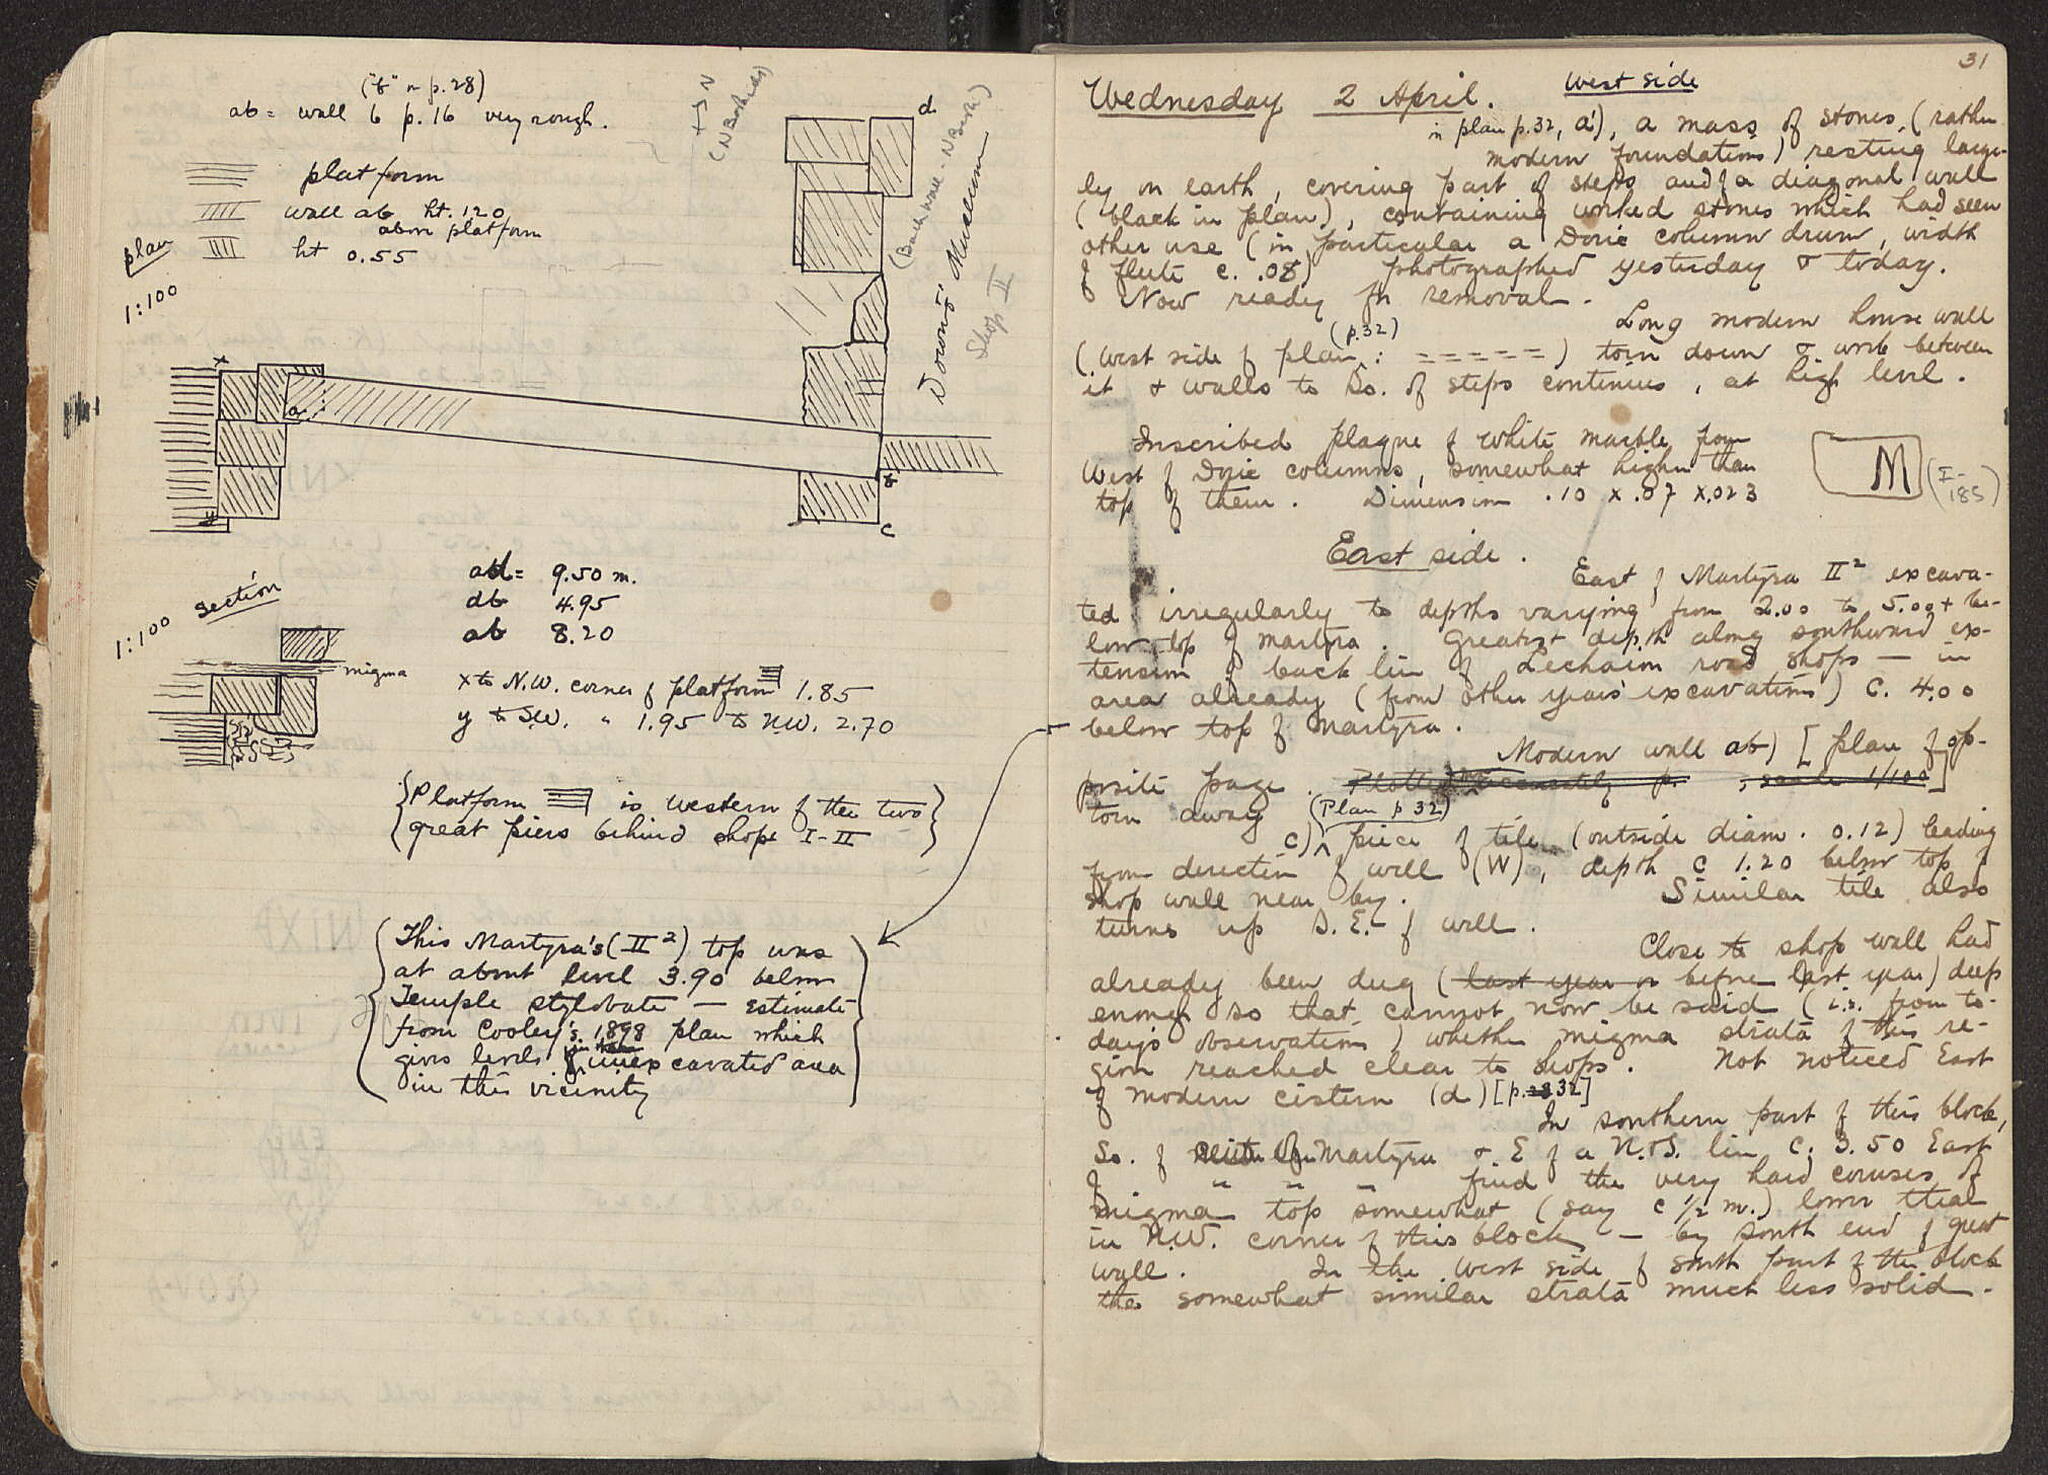 ("b" on p. 28)
ab = wall 6 p. 16 very rough.
platform
wall ab ht. 120
above platform
ht 0.55
plan
1:100
N
(N Bookidis)
d
(Back wall - N Book.)
Domus' Museum
Shop II
x
a
b
y
c
1:100 section
migma
ad = 9.50 m.
db 4.95
ab 8.20
x to N.W. corner of platform 1.85
y to S.W. " 1.95 to N.W. 2.70
{Platform is western of the two
great piers behind shops I-II}
(This Martyra's (II²) top was
at about level 3.90 below
Temple stylobate — estimate
from Cooley's 1898 plan which
gives levels of unexcavated area
in this vicinity)
31
Wednesday 2 April. West side
in plan p. 32, a'), a mass of stones (rather
modern foundations) resting large-
ly on earth, covering part of steps and of a diagonal wall
(black in plan), containing worked stones which had seen
other use (in particular a Doric column drum, width
of flute c. .08) photographed yesterday & today.
Now ready for removal.
Long modern house wall
(west side of plan (p. 32) : = = = = =) torn down & work between
it & walls to So. of steps continues, at high level.
Inscribed plaque of white marble from
West of Doric columns, somewhat higher than
top of them. Dimension .10 x .07 x .023
M
(I-185)
East side.
East of Martyra II² excava-
ted irregularly to depths varying from 2.00 to 5.00+ be-
low top of martyra. Greatest depth along southward ex-
tension of back line of Lechaion road shops — in
area already (from other years' excavations) c. 4.00
below top of martyra.
Modern wall ab) [plan of op-
posite page. Plotted accurately p. , scale 1/100]
torn away
c) (Plan p 32) piece of tile (outside diam. 0.12) leading
from direction of well (W), depth c 1.20 below top of
shop wall near by. Similar tile also
turns up S.E. of well.
Close to shop wall had
already been dug (last year or before last year) deep
enough so that cannot now be said (i.e. from to-
day's observations) whether migma strata of this re-
gion reached clear to shops. Not noticed East
of modern cistern (d) [p. 28 32]
In southern part of this block,
So. of Martyra & E of a N.-S. line c. 3.50 East
of " " " find the very hard courses of
migma top somewhat (say c 1/2 m.) lower than
in N.W. corner of this block — by south end of great
wall. In the west side of south part of the block
the somewhat similar strata much less solid.